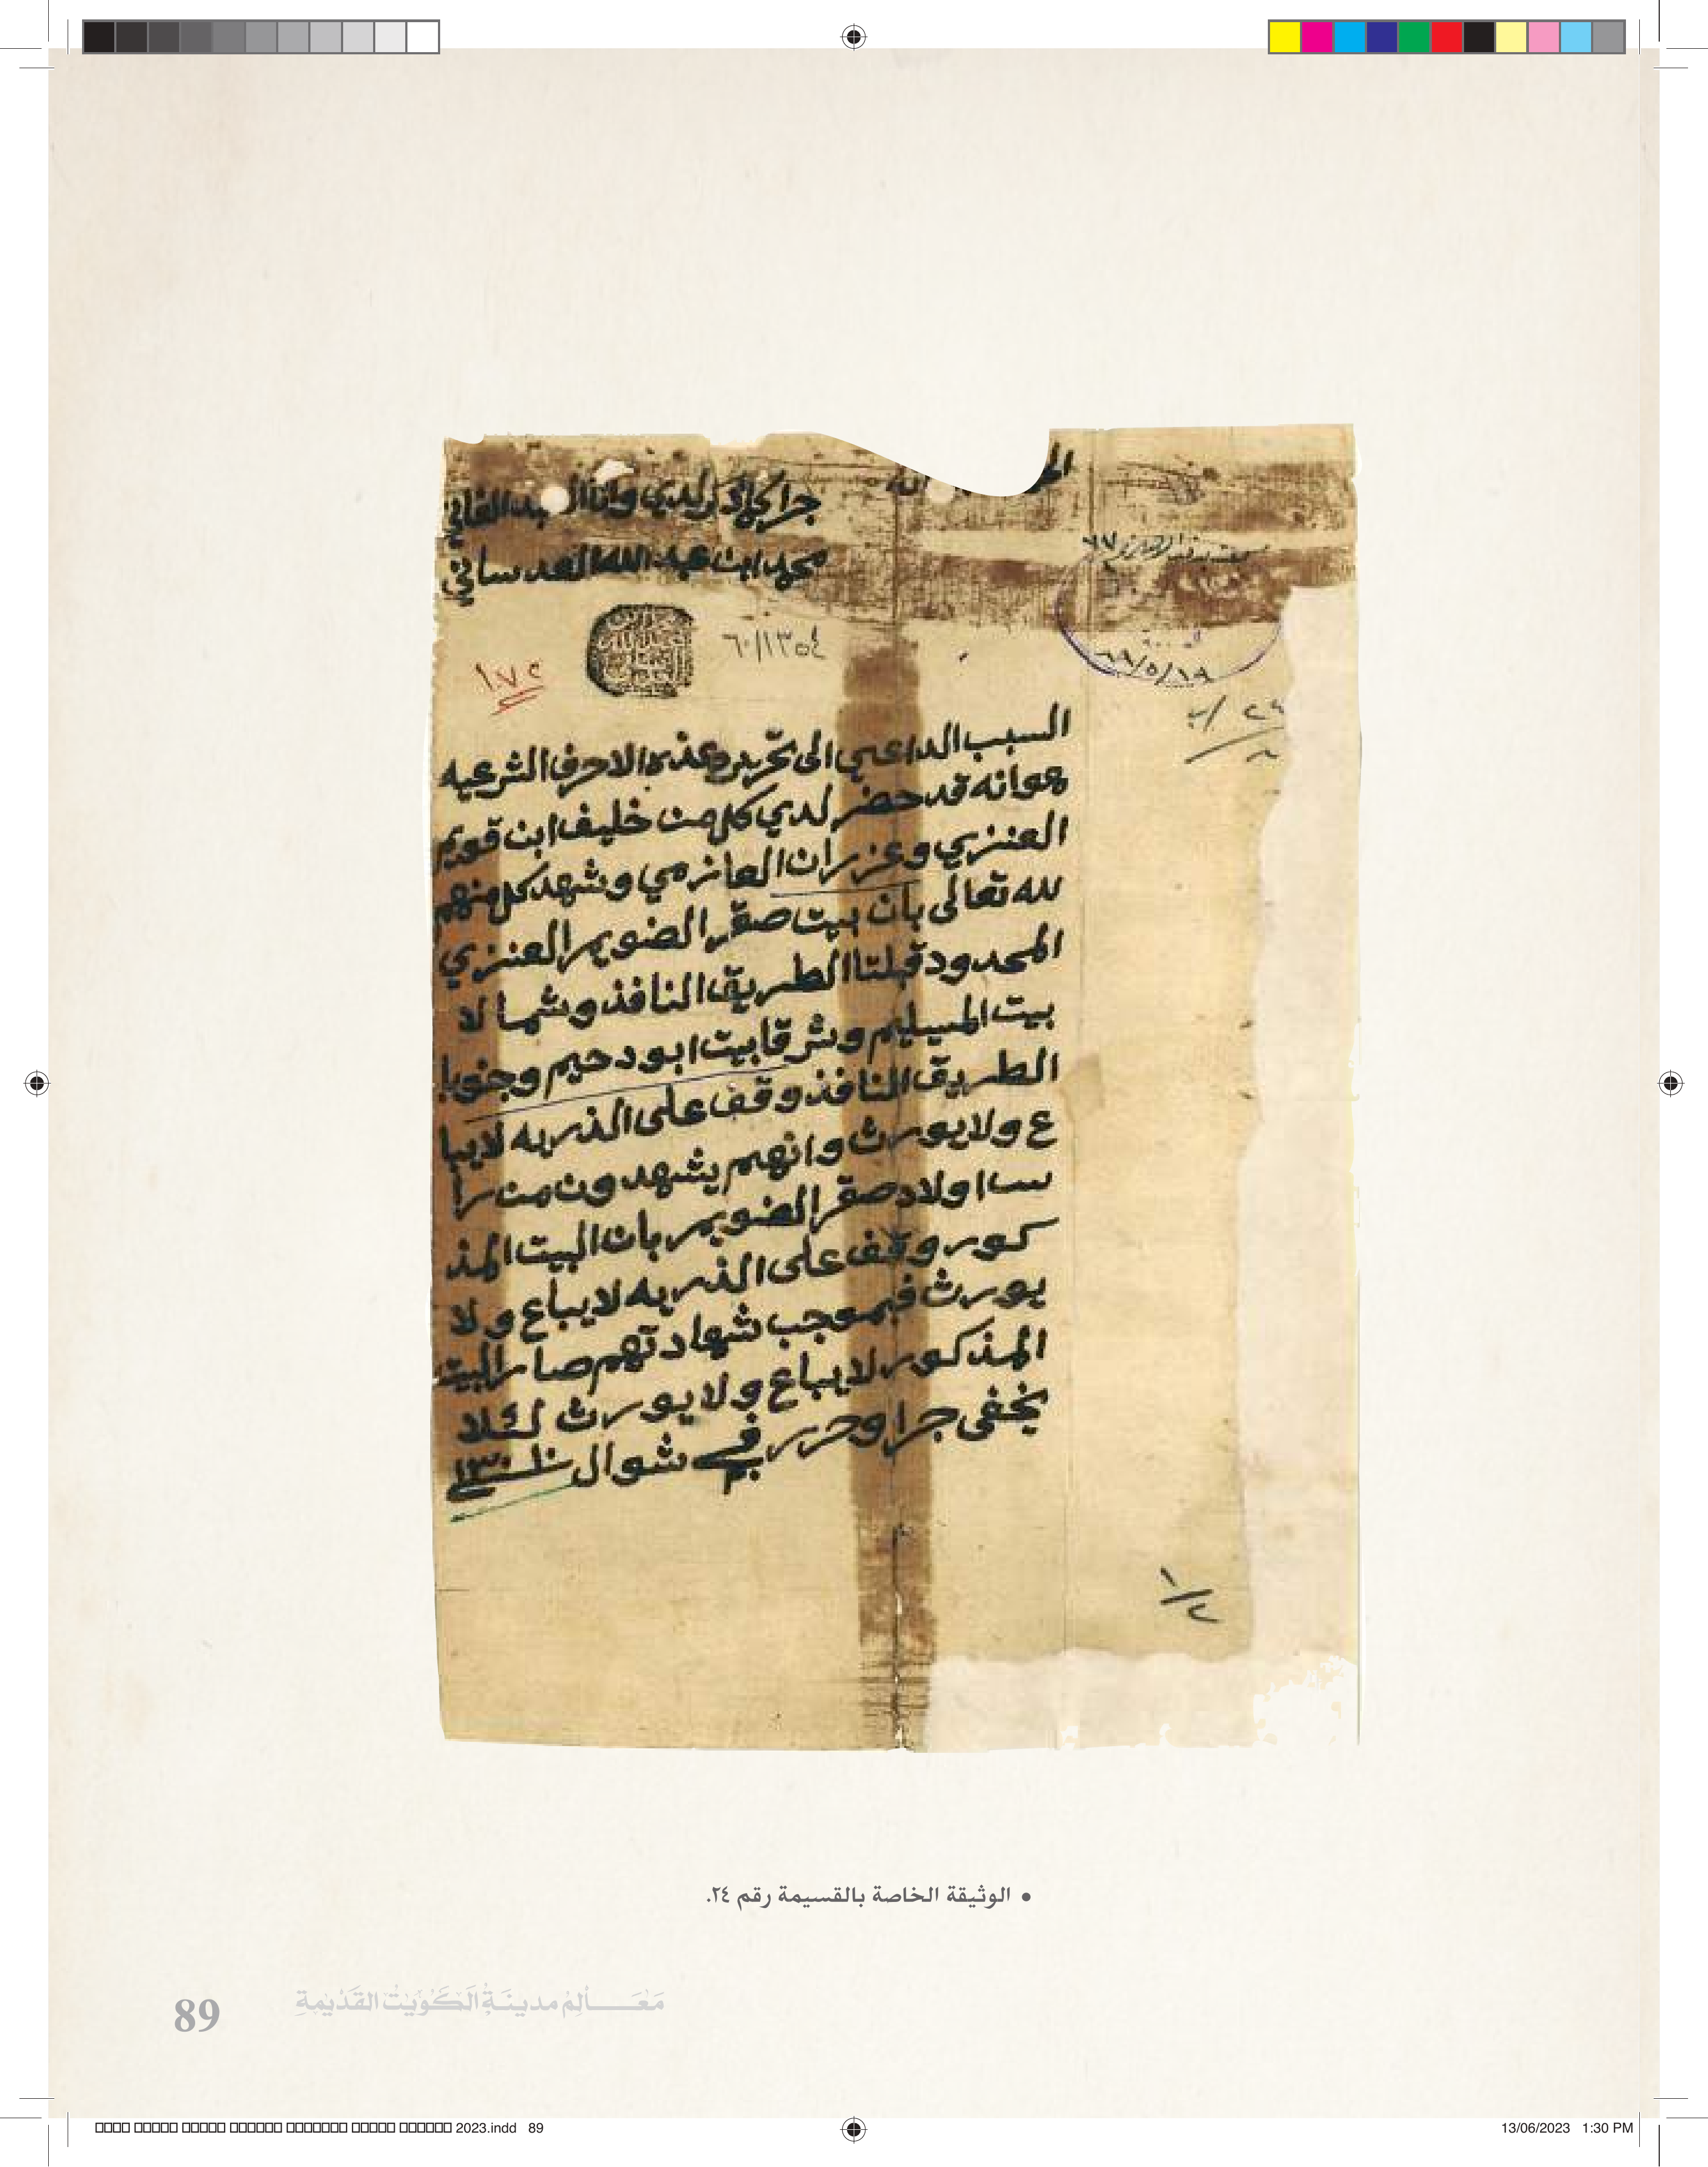 جرا كما ذكر لدي وانا العبد الفاني
محمد ابن عبد الله العدساني
٦٠/١٣٥٤
١٧٢
٦٩/٥/١٩
السبب الداعي الى تحرير هذه الاحرف الشرعيه
هو انه قد حضر لدي كل من خليف ابن قويم
العنزي وعزران العازمي وشهد كل منهم
لله تعالى بان بيت صقر الضوير العنزي
المحدود قبلتا الطريق النافذ وشمالا
بيت المسيليم وشرقا بيت ابو دحيم وجنوبا
الطريق النافذ وقف على الذريه لايبا
ع ولايورث وانهم يشهدون من را
سا اولاد صقر الضوير بان البيت المذ
كور وقف على الذريه لايباع ولا
يورث فبموجب شهادتهم صار البيت
المذكور لايباع ولايورث لئلا
يخفى جرا وحرر في شوال ١٣٠٠
١/٢
• الوثيقة الخاصة بالقسيمة رقم ٢٤.
مَعَالِمُ مدينَةِ الكُوَيْتْ القَدْيمةِ
89
2023.indd 89
13/06/2023 1:30 PM